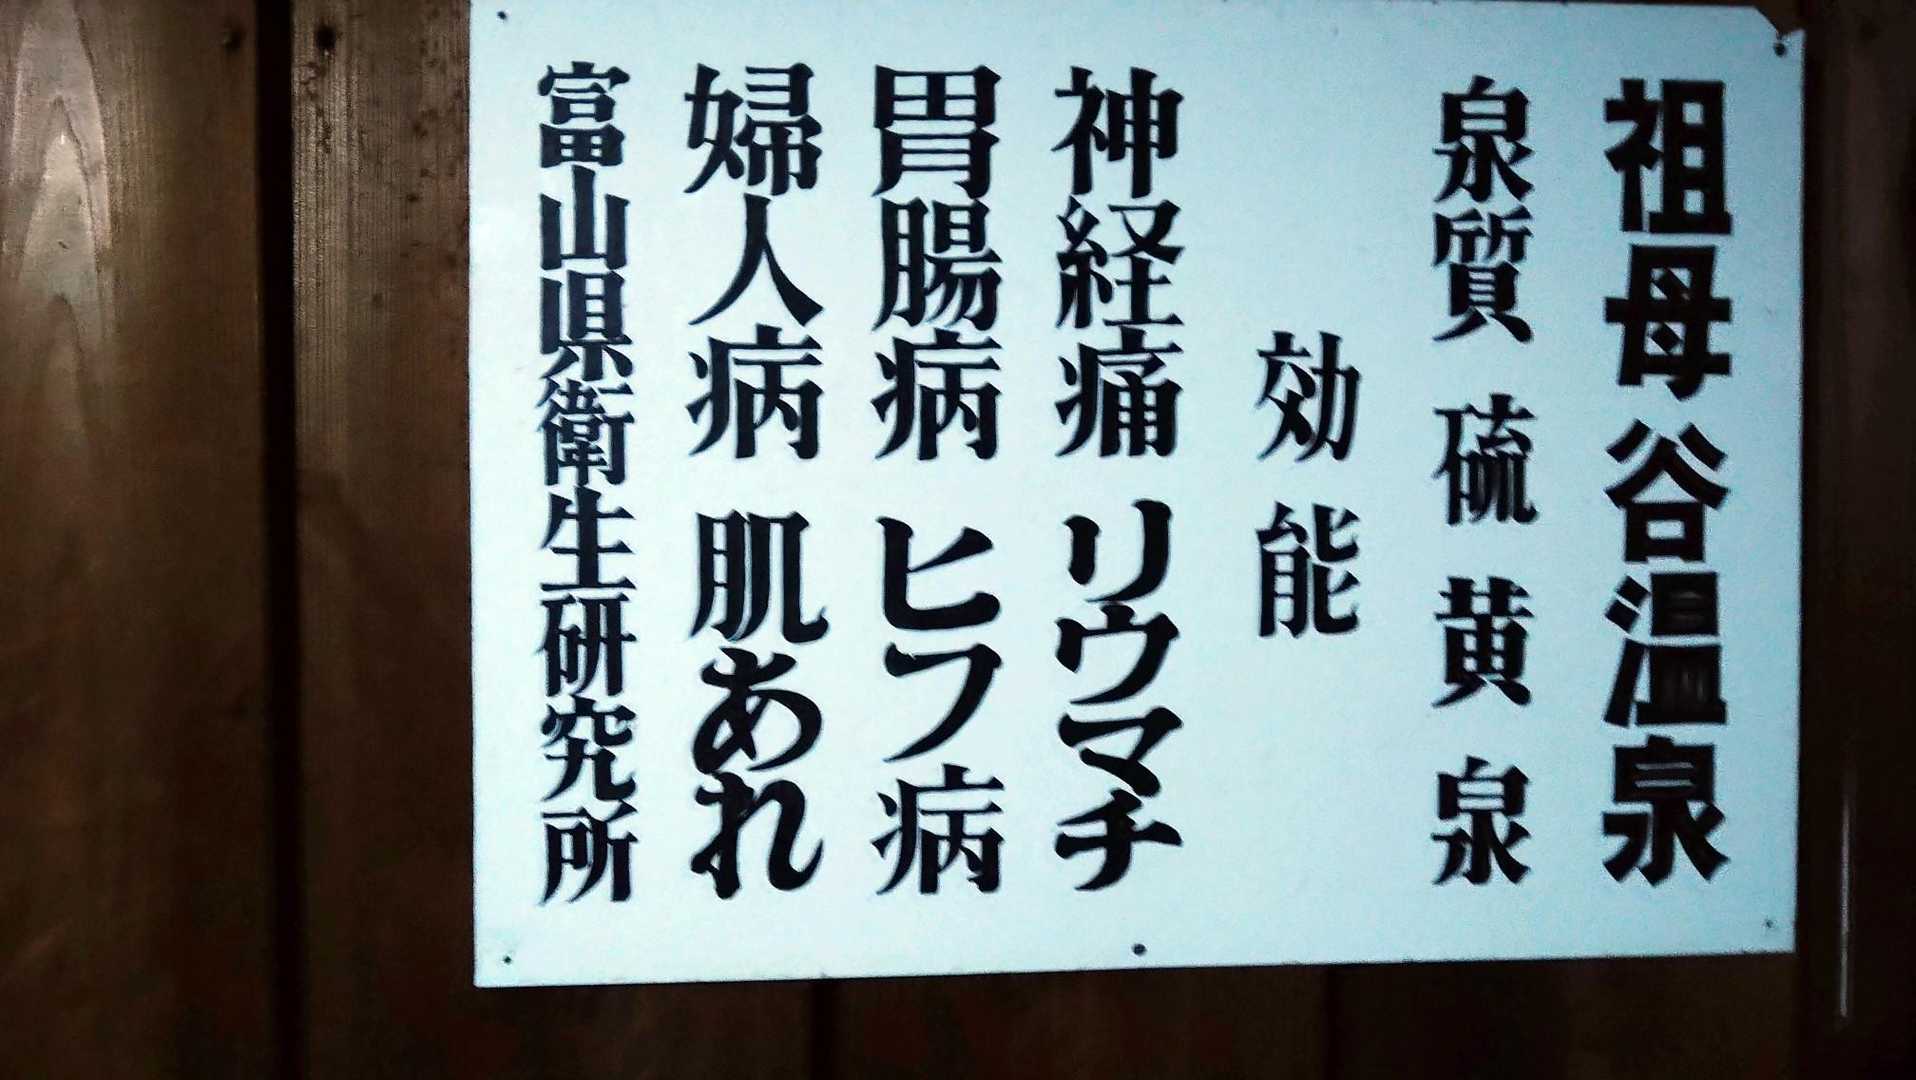 祖母谷温泉
泉質 硫黄泉
効能
神経痛 リウマチ
胃腸病 ヒフ病
婦人病 肌あれ
富山県衛生研究所